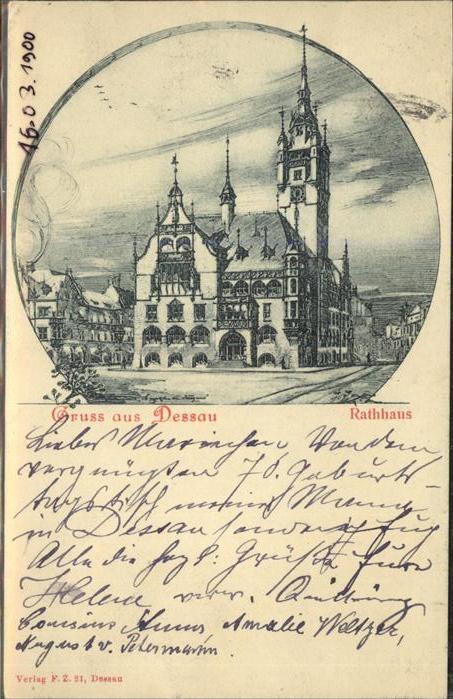 16.03.1900
Gruss aus Dessau
Rathhaus
Liebes Mariechen Von dem
vergnügten 70. Geburts-
tagstisch meines Mannes
in Dessau senden
Alle die Grüße
Helene verw.
Cousine Anna Amalie Weltzer,
August v. Petermann.
Verlag F. Z. 21, Dessau